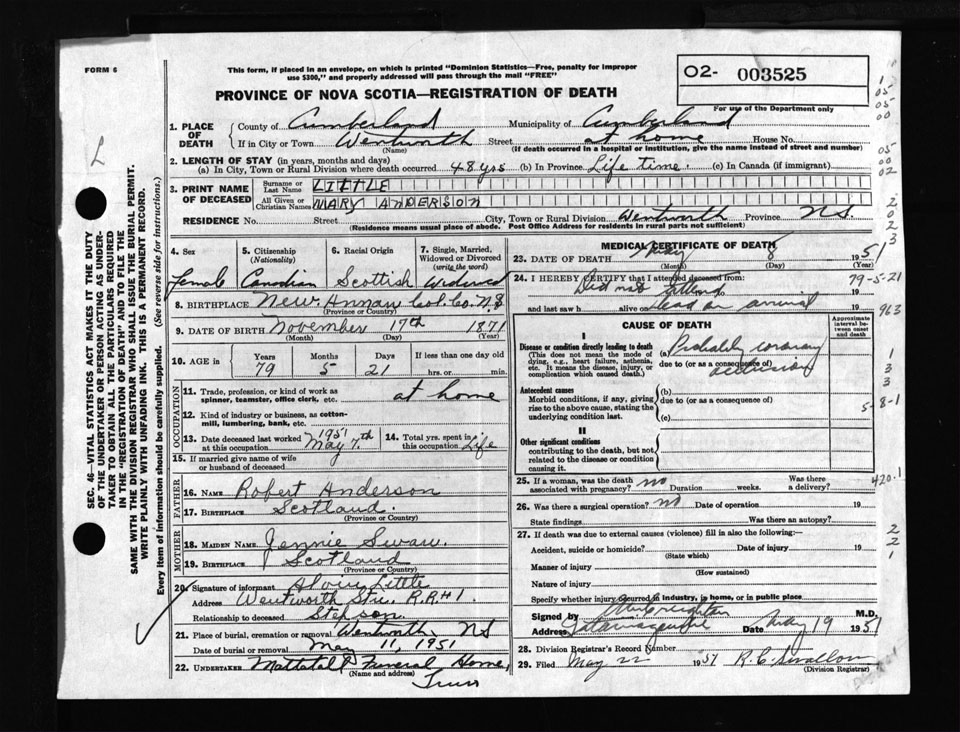 FORM 6
This form, if placed in an envelope, on which is printed "Dominion Statistics—Free, penalty for improper
use $300," and properly addressed will pass through the mail "FREE"
O2- 003525
For use of the Department only
PROVINCE OF NOVA SCOTIA—REGISTRATION OF DEATH
L
1. PLACE OF DEATH
County of Cumberland Municipality of Cumberland
If in City or Town Wentworth Street at home House No.
(Name) (If death occurred in a hospital or institution, give the name instead of street and number)
2. LENGTH OF STAY (in years, months and days)
(a) In City, Town or Rural Division where death occurred 48 yrs (b) In Province Life time. (c) In Canada (if immigrant)
3. PRINT NAME OF DECEASED
Surname or Last Name LITTLE
All Given or Christian Names MARY ANDERSON
RESIDENCE No. Street City, Town or Rural Division Wentworth Province N.S.
(Residence means usual place of abode. Post Office Address for residents in rural parts not sufficient)
4. Sex
Female
5. Citizenship (Nationality)
Canadian
6. Racial Origin
Scottish
7. Single, Married, Widowed or Divorced (write the word)
Widowed
8. BIRTHPLACE New Annan Col. Co. N.S
(Province or Country)
9. DATE OF BIRTH November 17th 1871
(Month) (Day) (Year)
10. AGE in Years Months Days If less than one day old
79 5 21 hrs. or min.
OCCUPATION
11. Trade, profession, or kind of work as
spinner, teamster, office clerk, etc. at home
12. Kind of industry or business, as cotton-
mill, lumbering, bank, etc.
13. Date deceased last worked at this occupation 1951 May 7th
14. Total yrs. spent in this occupation Life
15. If married give name of wife
or husband of deceased
FATHER
16. NAME Robert Anderson
17. BIRTHPLACE Scotland.
(Province or Country)
MOTHER
18. MAIDEN NAME Jennie Swan
19. BIRTHPLACE Scotland
(Province or Country)
20. Signature of informant Little
Address Wentworth Stn. R.R#1.
Relationship to deceased Stepson.
21. Place of burial, cremation or removal Wentworth NS
Date of burial or removal May 11, 1951
22. UNDERTAKER Mattatall Funeral Home,
(Name and address)
Truro
MEDICAL CERTIFICATE OF DEATH
23. DATE OF DEATH May 8 1951
(Month) (Day) (Year)
24. I HEREBY CERTIFY that I attended deceased from:
Did not attend 19
and last saw h alive on dead on arrival 19
CAUSE OF DEATH
Approximate interval between onset and death
I
Disease or condition directly leading to death
(This does not mean the mode of
dying, e.g., heart failure, asthenia,
etc. It means the disease, injury, or
complication which caused death.)
(a) Probably coronary
due to (or as a consequence of) occlusion
Antecedent causes
Morbid conditions, if any, giving
rise to the above cause, stating the
underlying condition last.
(b)
due to (or as a consequence of)
(c)
II
Other significant conditions
contributing to the death, but not
related to the disease or condition
causing it.
25. If a woman, was the death
associated with pregnancy? no Duration weeks. Was there a delivery?
26. Was there a surgical operation? no Date of operation 19
State findings Was there an autopsy?
27. If death was due to external causes (violence) fill in also the following:—
Accident, suicide or homicide? Date of injury 19
(State which)
Manner of injury
(How sustained)
Nature of injury
Specify whether injury occurred in industry, in home, or in public place
Signed by M.D.
Address Tatamagouche Date May 19 1951
28. Division Registrar's Record Number
29. Filed May 22 1951 R. C. Swallow
(Division Registrar)
SEC. 46—VITAL STATISTICS ACT MAKES IT THE DUTY
OF THE UNDERTAKER OR PERSON ACTING AS UNDER-
TAKER TO OBTAIN ALL THE PARTICULARS REQUIRED
IN THE "REGISTRATION OF DEATH" AND TO FILE THE
SAME WITH THE DIVISION REGISTRAR WHO SHALL ISSUE THE BURIAL PERMIT.
WRITE PLAINLY WITH UNFADING INK. THIS IS A PERMANENT RECORD.
Every item of information should be carefully supplied. (See reverse side for instructions.)
1
05
05
00
05
00
02
2
0
2
3
79-5-21
963
1
3
3
5-8-1
420.1
2
2
1